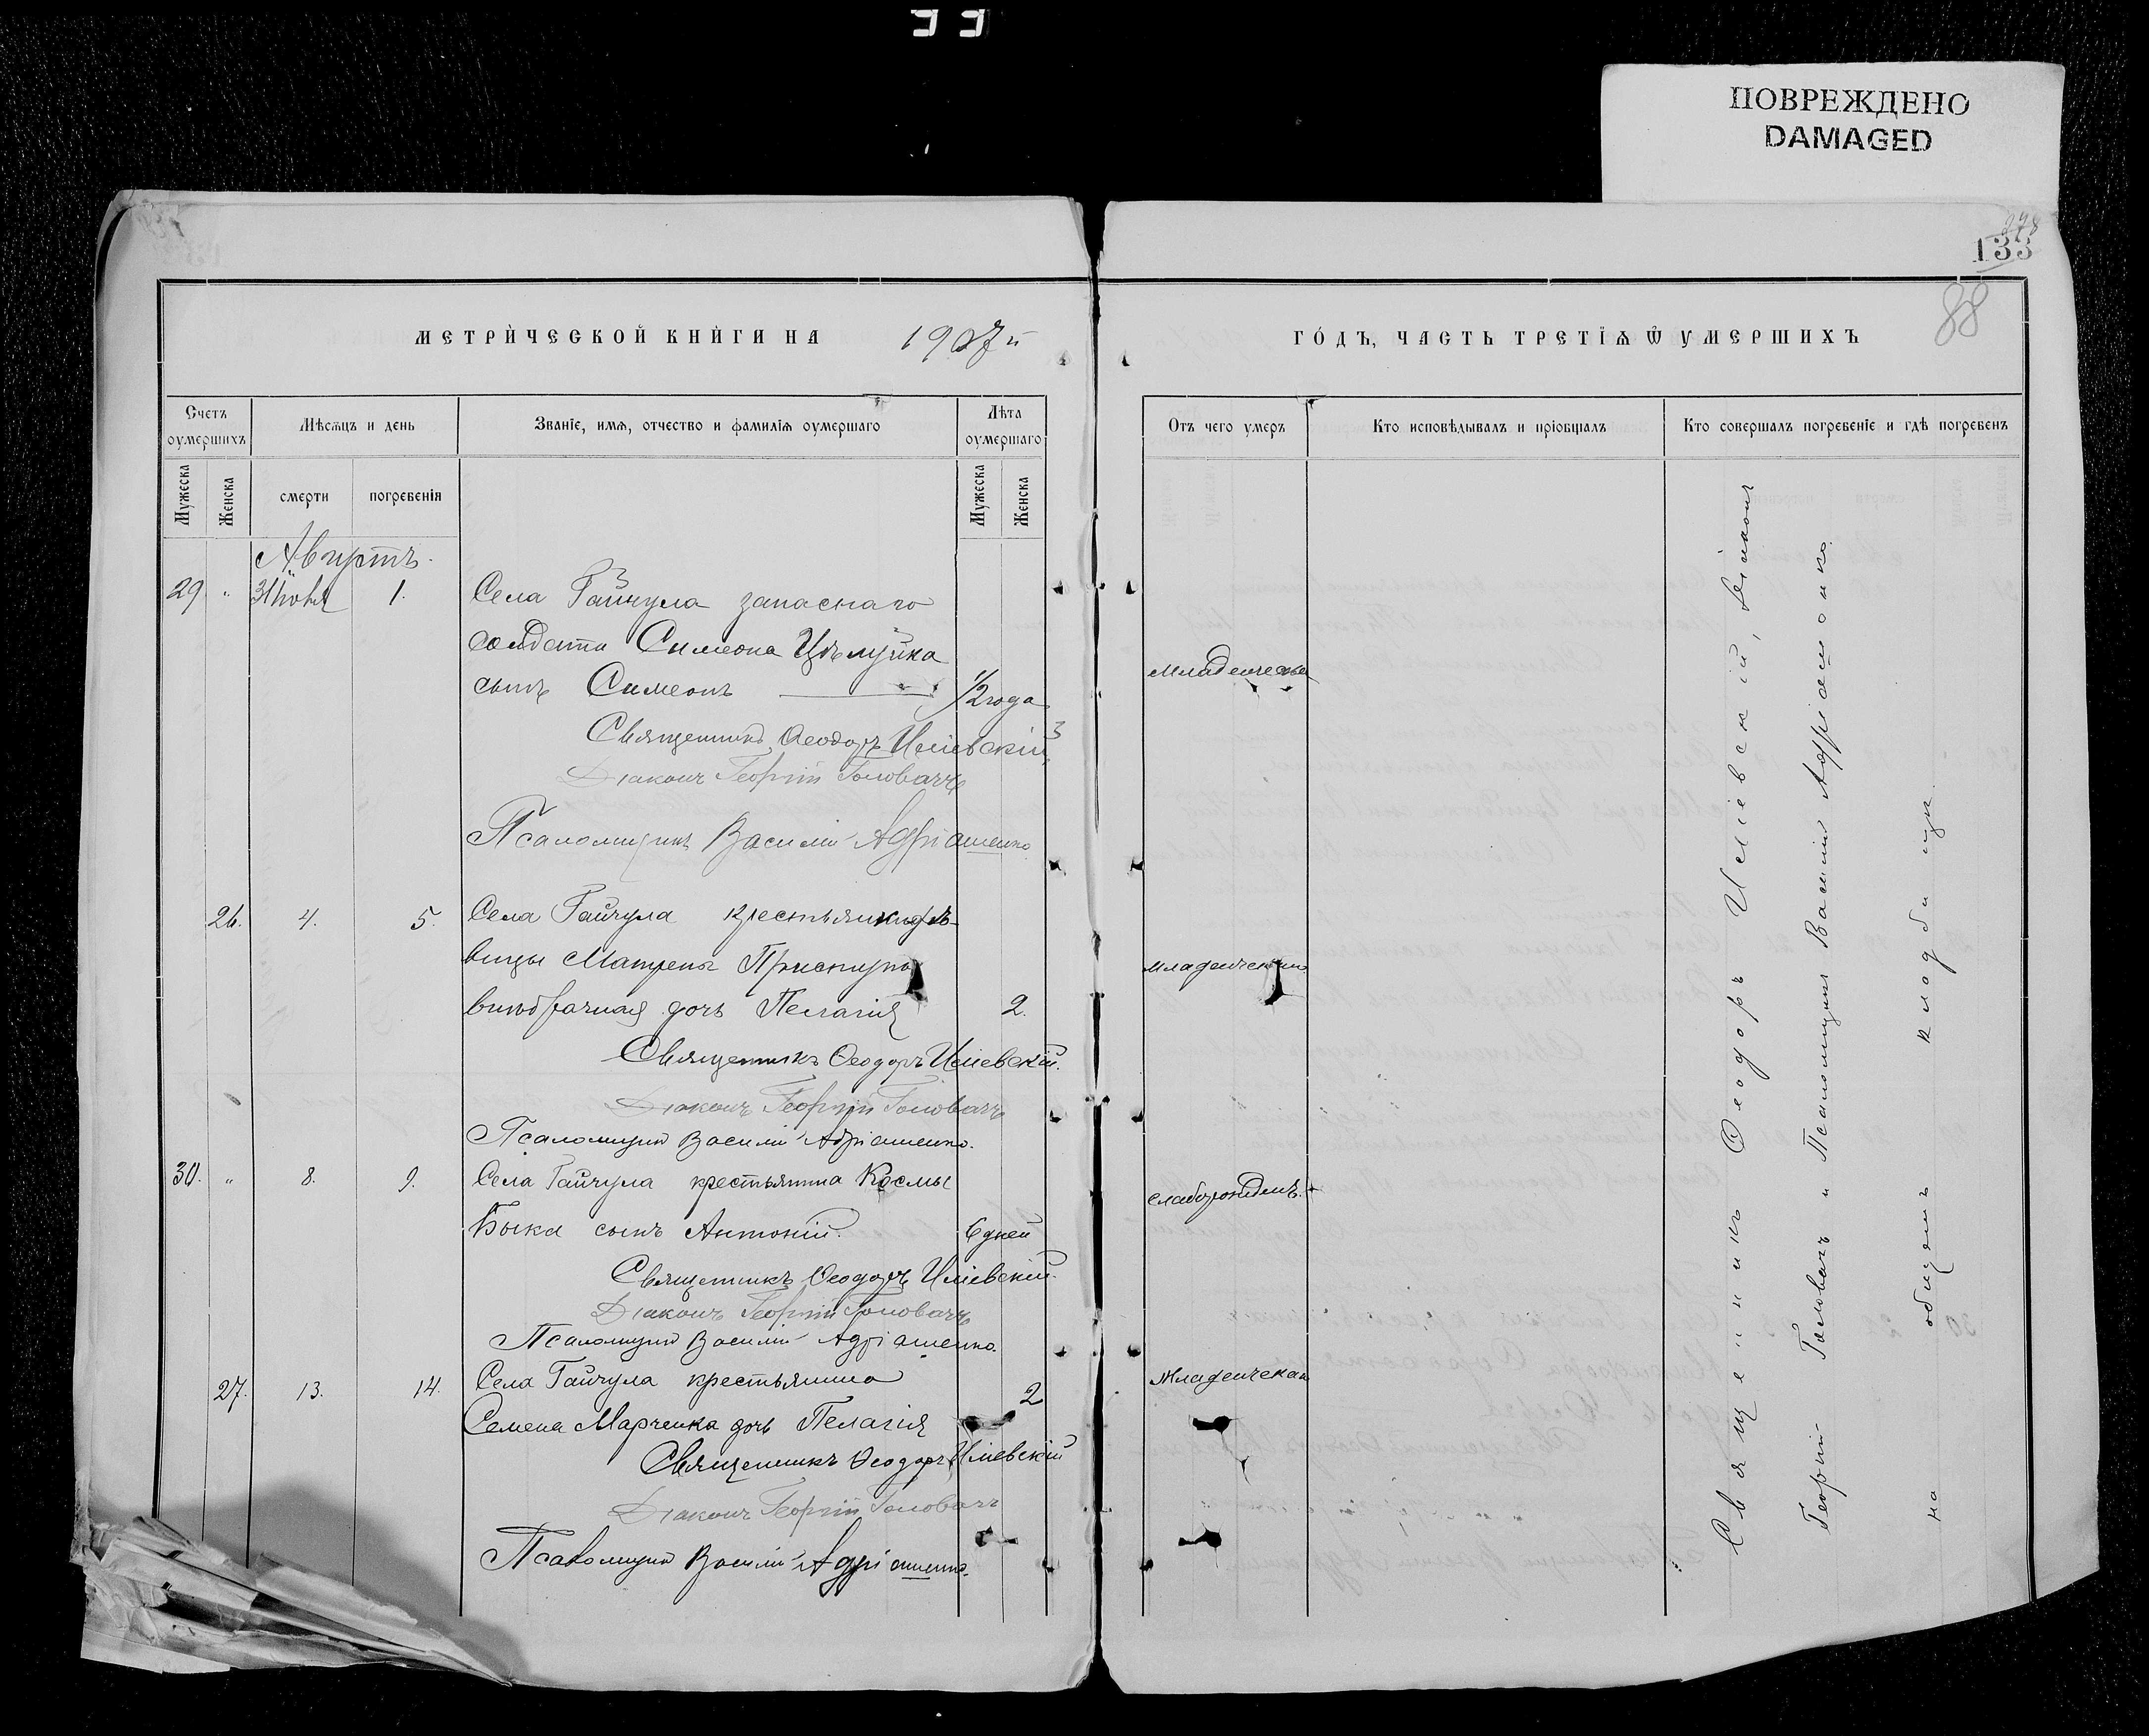 ПОВРЕЖДЕНО
DAMAGED
133
88
МЕТРИЧЕСКОЙ КНИГИ НА 1907й
ГОДЪ, ЧАСТЬ ТРЕТІѦ Ѿ УМЕРШИХЪ
Счетъ оумершихъ
Мѣсѧцъ и день
Званіе, имѧ, отчество и фамиліѧ оумершаго
Лѣта оумершаго
Отъ чего умеръ
Кто исповѣдывалъ и пріобщалъ
Кто совершалъ погребеніе и гдѣ погребенъ
Мужеска
Женска
смерти
погребенія
Мужеска
Женска
Августъ.
29 " 31 Іюля 1. Села Гайчула запаснаго
солдата Симеона
сынъ Симеонъ 1/2 года
Младенческая
Священникъ Ѳеодоръ Иліевскій
Діаконъ Георгій Головачъ
Псаломщикъ Василій Адріашенко
26. 4. 5. Села Гайчула крестьянки дѣ-
вицы Матрены
внѣбрачная дочь Пелагія 2.
младенческая
Священникъ Ѳеодоръ Иліевскій.
Діаконъ Георгій Головачъ
Псаломщикъ Василій Адріашенко.
30. " 8. 9. Села Гайчула крестьянина Космы
Быка сынъ Антоній. 6 дней
Священникъ Ѳеодоръ Иліевскій.
Діаконъ Георгій Головачъ
Псаломщикъ Василій Адріашенко.
27. 13. 14. Села Гайчула крестьянина
Семена Марченка дочь Пелагія 2
Младенческая
Священникъ Ѳеодоръ Иліевскій
Діаконъ Георгій Головачъ
Псаломщикъ Василій Адріашенко.
Священникъ Ѳеодоръ Иліевскій, Діаконъ
Георгій Головачъ и Псаломщикъ Василій Адріашенко
на общемъ кладбищѣ.